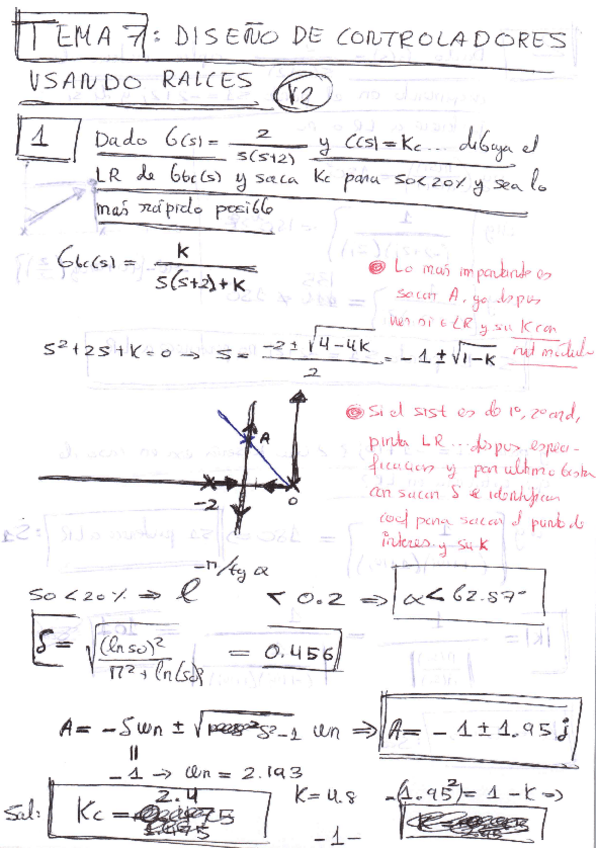 TEMA 7: DISEÑO DE CONTROLADORES
USANDO RAICES V2
1 Dado G(s) = 2/(s(s+2)) y C(s) = Kc ... dibuja el
LR de Gbc(s) y saca Kc para SO<20% y sea lo
mas rápido posible
Gbc(s) = K/(s(s+2)+K)
Lo mas importante es
sacar A, ya
LR y su K con
s²+2s+K=0 → s = (-2±√(4-4K))/2 = -1±√(1-K)
A
-2
0
Si el sist es de 1º, 2º ord,
pinta LR ... despues especi-
ficaciones y por ultimo basta
con sacar S e identificar
coef para sacar el punto de
interes y su K
SO<20% ⇒ e^(-π/tg α) < 0.2 ⇒ α<62.87°
δ = √((ln so)²/(π²+ln(so)²)) = 0.456
A = -δωn ± √(δ²-1) ωn ⇒ A = -1 ± 1.95j
=
-1 → ωn = 2.193
Sol: Kc = 2.4
K=4.8
-(1.95²) = 1-K ⇒
-1-